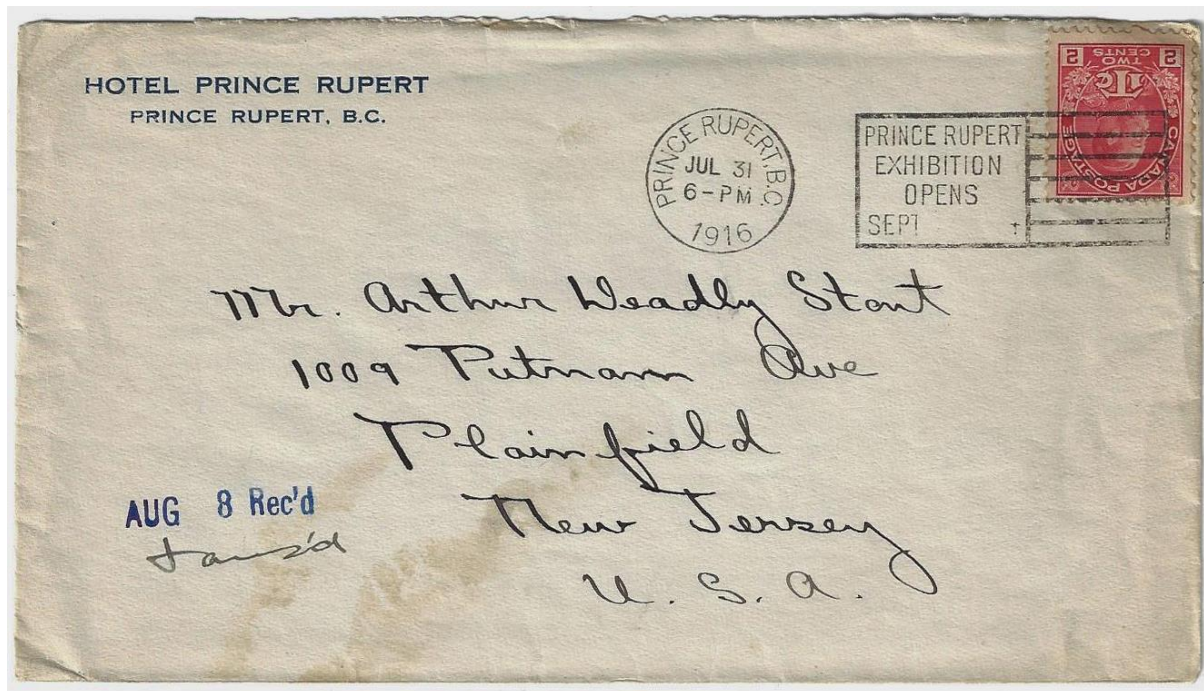 HOTEL PRINCE RUPERT
PRINCE RUPERT, B.C.
PRINCE RUPERT, B.C.
JUL 31
6-PM
1916
PRINCE RUPERT
EXHIBITION
OPENS
SEPT
2 TWO CENTS 2
CANADA POSTAGE
Mr. Arthur Weadly Stout
1009 Putnam Ave
Plainfield
New Jersey
U. S. A.
AUG 8 Rec'd